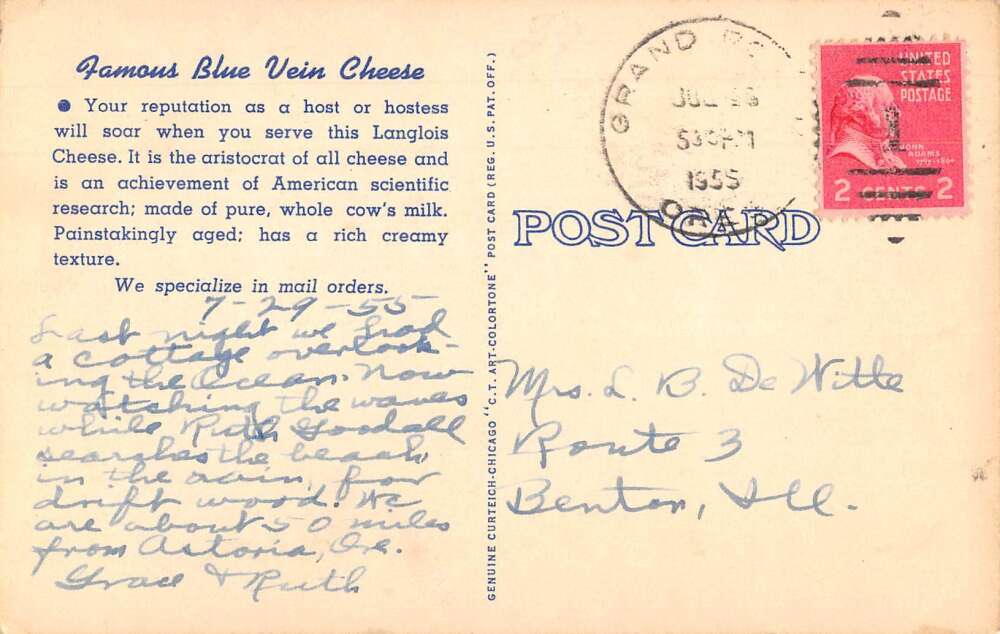 Famous Blue Vein Cheese
● Your reputation as a host or hostess
will soar when you serve this Langlois
Cheese. It is the aristocrat of all cheese and
is an achievement of American scientific
research; made of pure, whole cow's milk.
Painstakingly aged; has a rich creamy
texture.
We specialize in mail orders.
7-29-55
Last night we had
a cottage overlook-
ing the Ocean. Now
watching the waves
while Ruth Goodall
searches the beach,
in the rain, for
drift wood. We
are about 50 miles
from Astoria, Ore.
Grace & Ruth
GENUINE CURTEICH-CHICAGO "C.T. ART-COLORTONE" POST CARD (REG. U.S. PAT. OFF.)
GRAND
JUL
1955
ORE
UNITED
STATES
POSTAGE
JOHN
ADAMS
2 CENTS 2
POST CARD
Mrs. L. B. De Witte
Route 3
Benton, Ill.